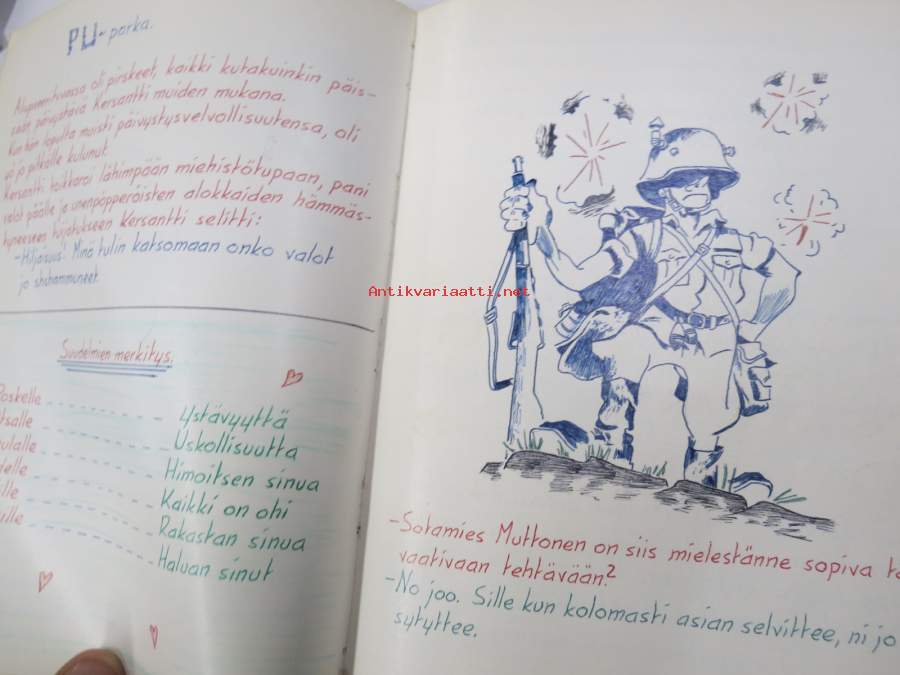 PU-parka.
Aliupseerituvassa oli pirskeet, kaikki kutakuinkin päis-
sään päivystävä Kersantti muiden mukana.
Kun hän lopulta muisti päivystysvelvollisuutensa, oli
yö jo pitkälle kulunut.
Kersantti taikkaroi lähimpään miehistötupaan, pani
valot päälle ja unenpöpperöisten alokkaiden hämmäs-
tyneeseen tuijotukseen Kersantti selitti:
-Hiljaisuus! Minä tulin katsomaan onko valot
jo shshammuneet.
Suudelmien merkitys.
Poskelle Ystävyyttä
Uskollisuutta
Himoitsen sinua
Kaikki on ohi
Rakastan sinua
Haluan sinut
Antikvariaatti.net
-Sotamies Muttonen on siis mielestänne sopiva
vaativaan tehtävään?
-No joo. Sille kun kolomasti asian selvittee, ni jo
sytyttee.